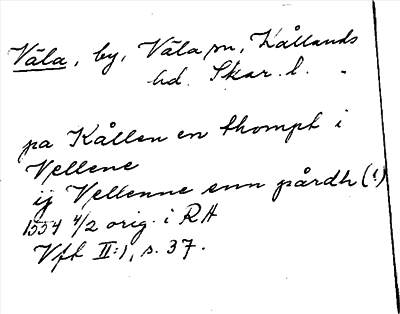 Väla, by, Väla sn, Kållands
hd. Skar. l.
pa Kållen en thompt i
Vellene
ij Vellenne enn pårdh (!)
1554 4/2 orig. i RA
Vft II:1, s. 37.